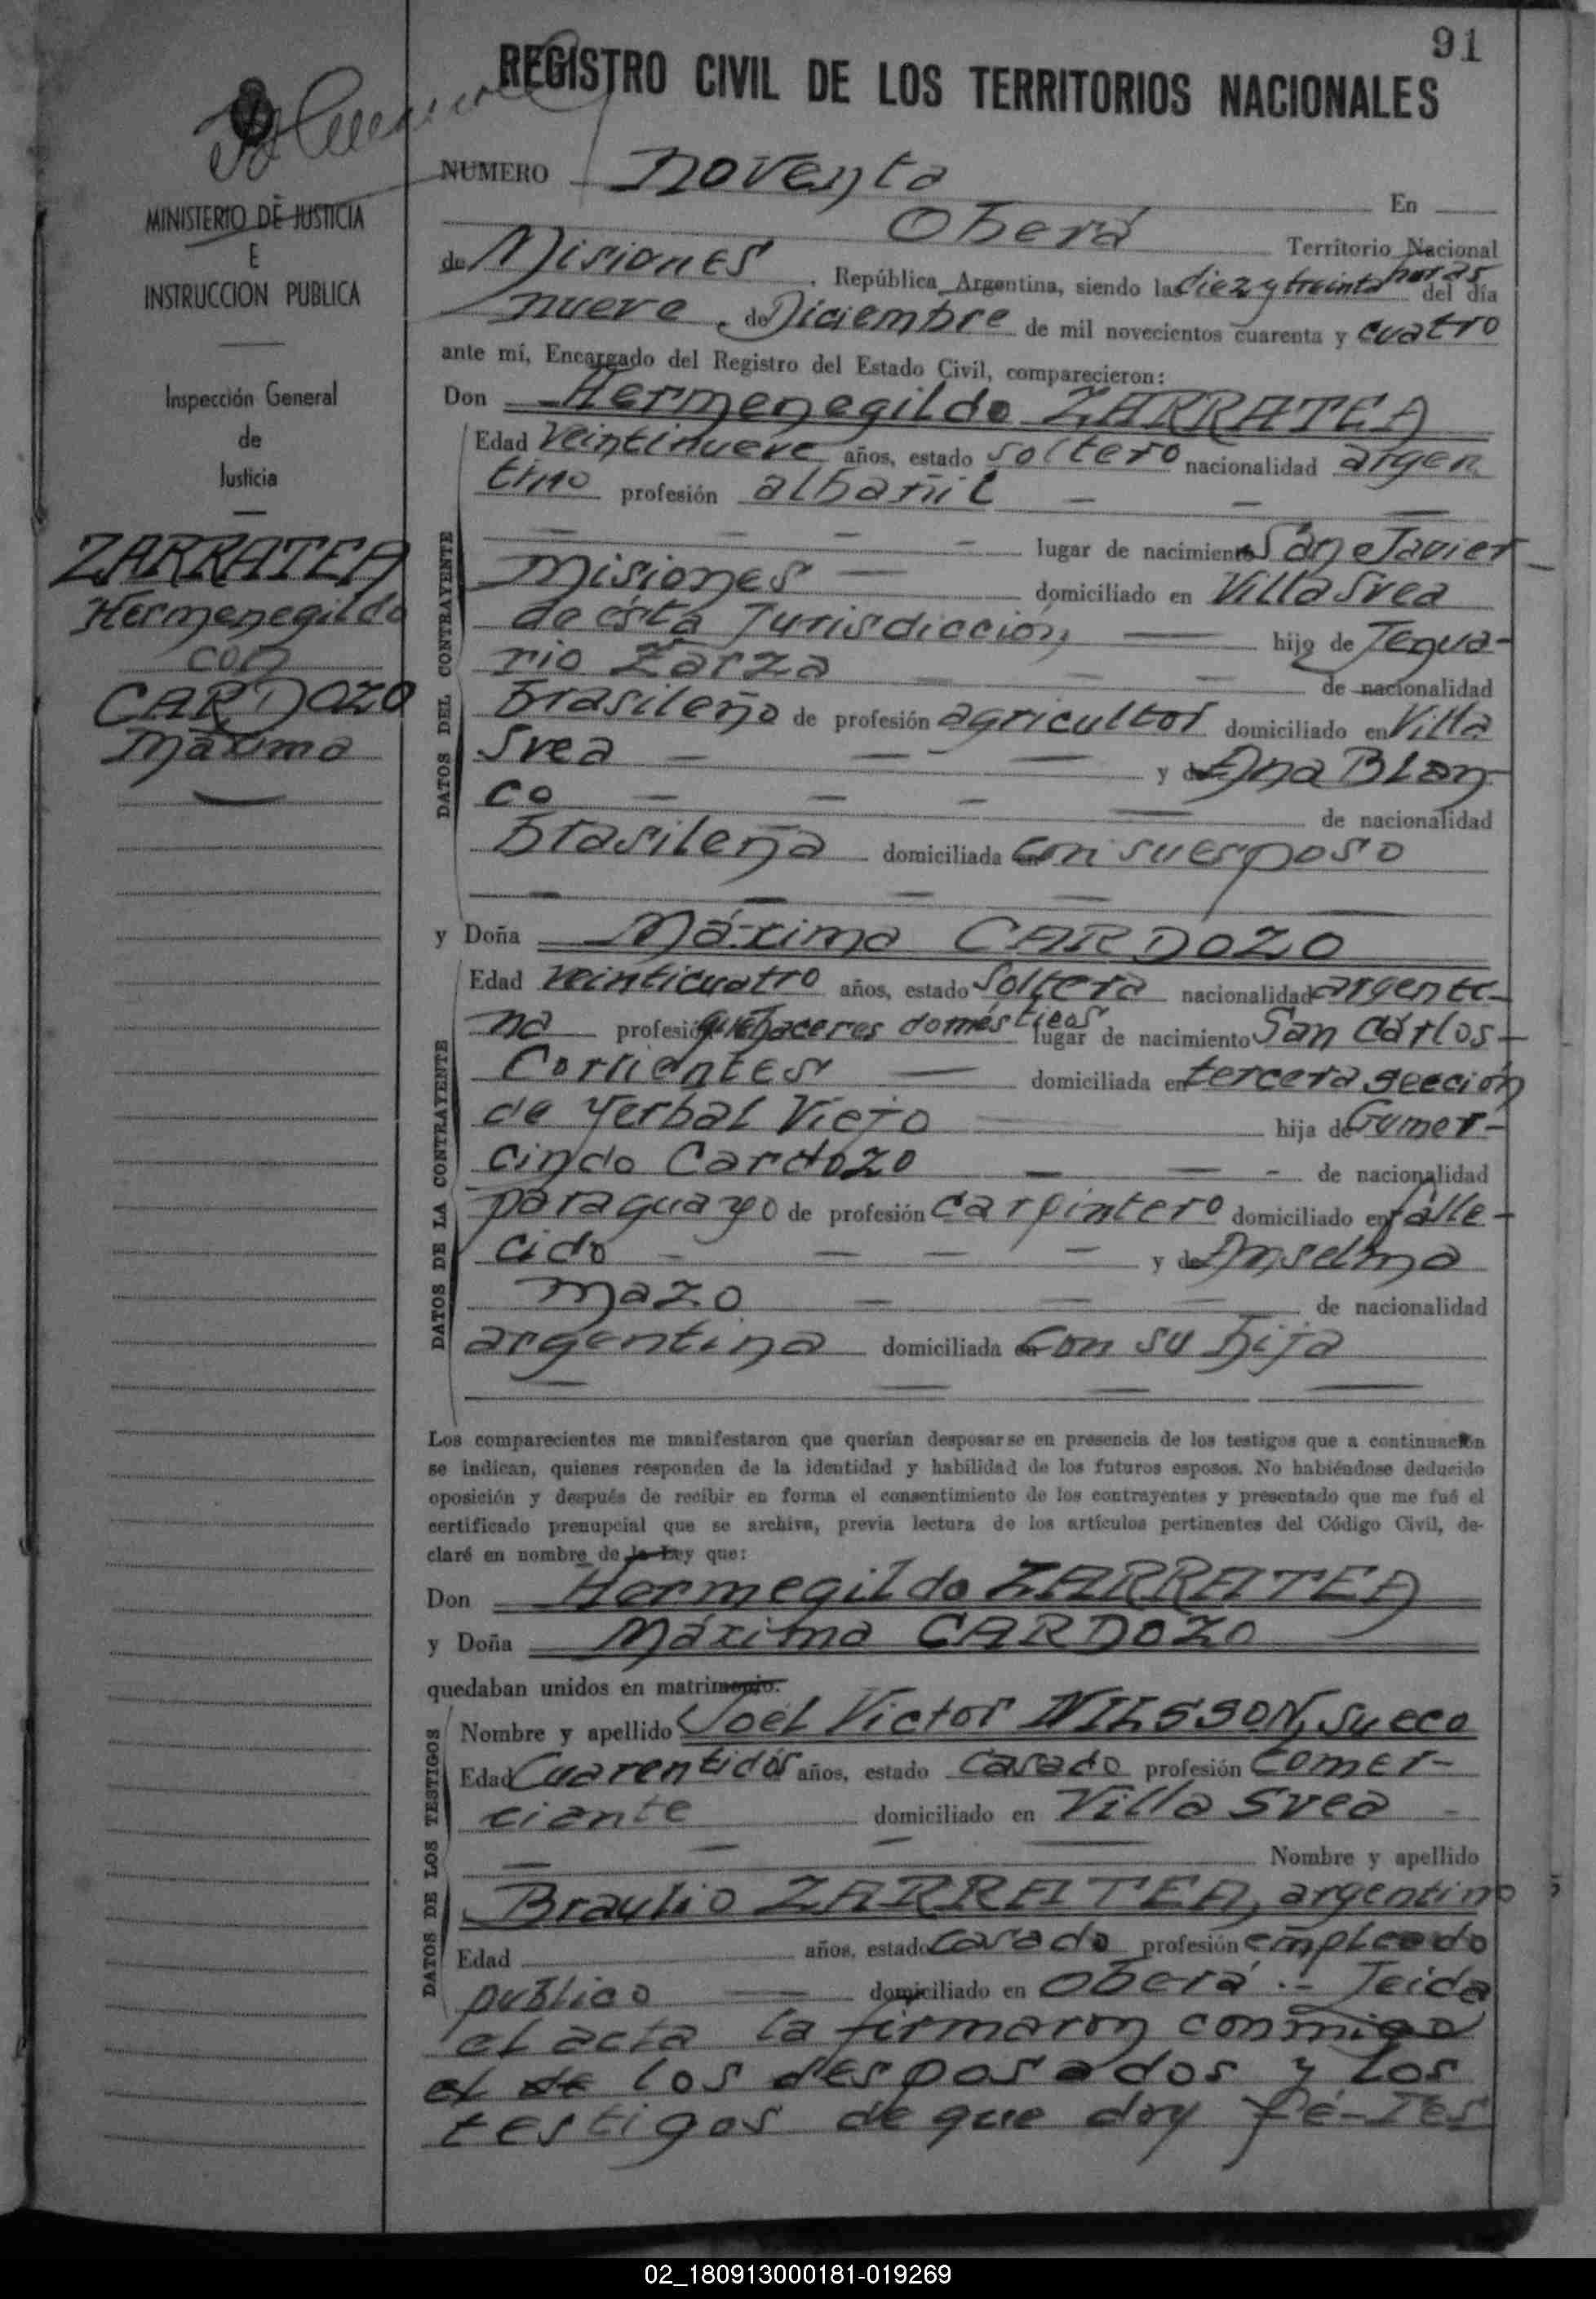 91
REGISTRO CIVIL DE LOS TERRITORIOS NACIONALES
MINISTERIO DE JUSTICIA
E
INSTRUCCION PUBLICA
Inspección General
de
Justicia
ZARRATEA
Hermenegildo
con
CARDOZO
Máxima
NUMERO Noventa En
Oberá Territorio Nacional
de Misiones, República Argentina, siendo las diez y treinta horas del día
nueve, de Diciembre de mil novecientos cuarenta y cuatro
ante mí, Encargado del Registro del Estado Civil, comparecieron:
Don Hermenegildo ZARRATEA
DATOS DEL CONTRAYENTE
Edad veintinueve años, estado soltero nacionalidad argen
tino profesión albañil
lugar de nacimiento San Javier
Misiones domiciliado en Villa Svea
de ésta Jurisdicción hijo de Tegua-
rio Zarza de nacionalidad
brasileño de profesión agricultor domiciliado en Villa
Svea y de Ana Blan
co de nacionalidad
brasileña domiciliada en con su esposo
y Doña Máxima CARDOZO
DATOS DE LA CONTRAYENTE
Edad veinticuatro años, estado Soltera nacionalidad argenti-
na profesión quehaceres domésticos lugar de nacimiento San Cárlos-
Corrientes domiciliada en tercera sección
de Yerbal Viejo hija de Gumer-
cindo Cardozo de nacionalidad
paraguayo de profesión carpintero domiciliado en falle-
cido y de Anselma
Mazo de nacionalidad
argentina domiciliada en con su hija
Los comparecientes me manifestaron que querían desposarse en presencia de los testigos que a continuación
se indican, quienes responden de la identidad y habilidad de los futuros esposos. No habiéndose deducido
oposición y después de recibir en forma el consentimiento de los contrayentes y presentado que me fué el
certificado prenupcial que se archiva, previa lectura de los artículos pertinentes del Código Civil, de-
claré en nombre de la Ley que:
Don Hermegildo ZARRATEA
y Doña Máxima CARDOZO
quedaban unidos en matrimonio.
DATOS DE LOS TESTIGOS
Nombre y apellido Joel Victor NILSSON, sueco
Edad Cuarentidós años, estado casado profesión comer-
ciante domiciliado en Villa Svea
Nombre y apellido
Braulio ZARRATEA, argentino
Edad años, estado casado profesión empleado
publico domiciliado en Oberá.- Leida
el acta la firmaron conmigo
el de los desposados y los
testigos de que doy fé-Tes
02_180913000181-019269